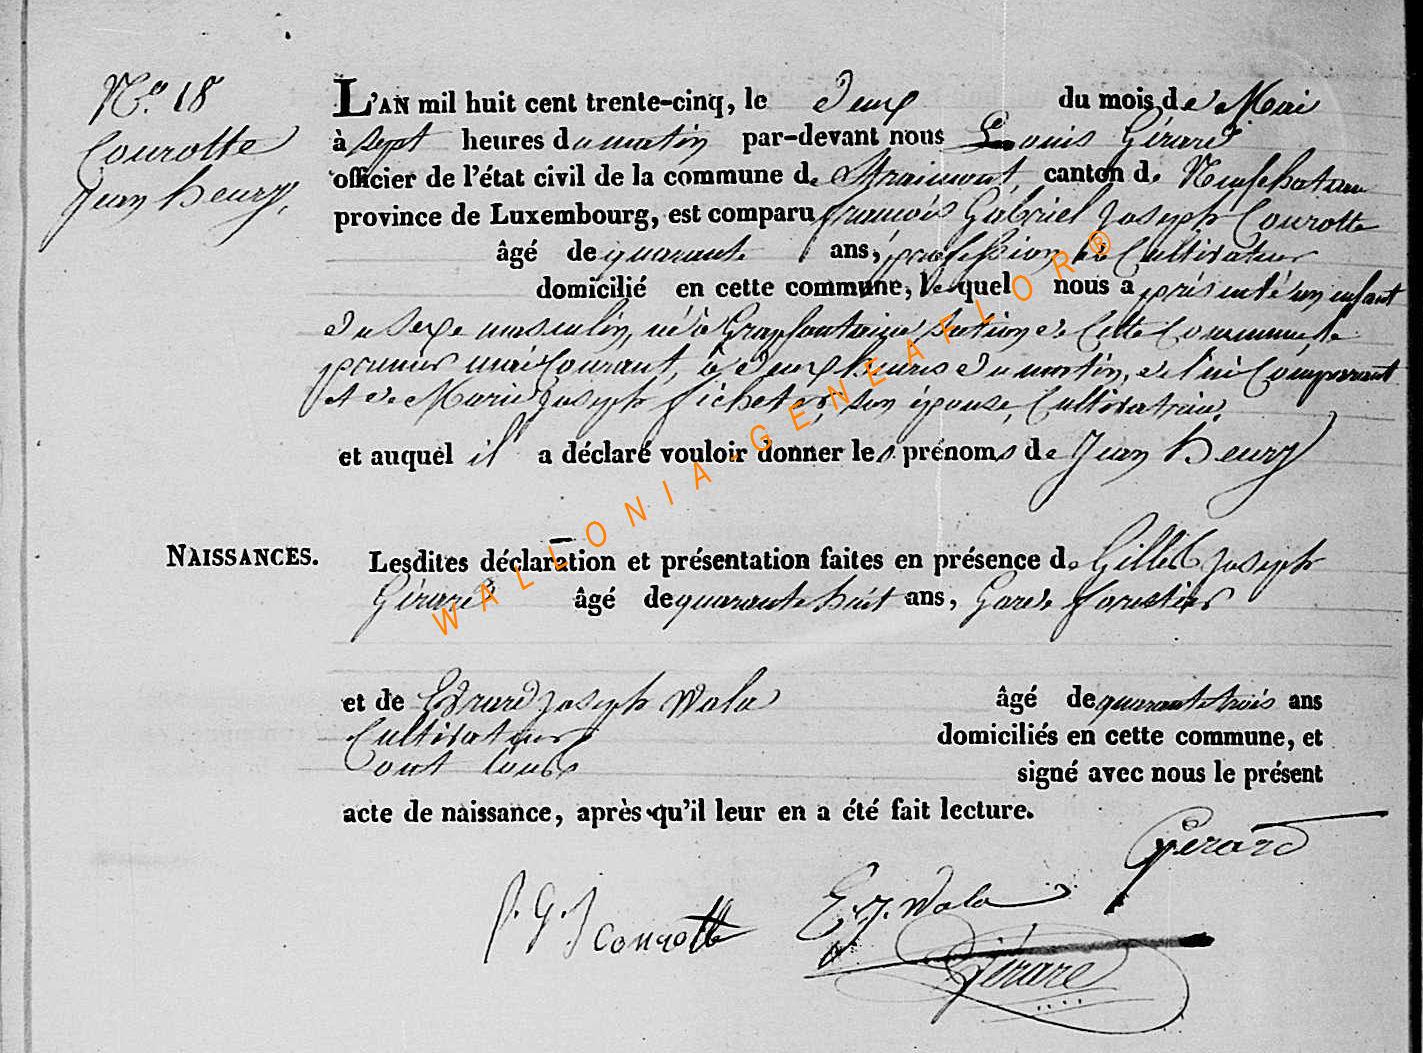 No. 18
Courotte
Jean henry.
L'AN mil huit cent trente-cinq, le deux du mois de Mai
à sept heures du matin par-devant nous Louis Gérard
officier de l'état civil de la commune de Straimont, canton de Neufchateau
province de Luxembourg, est comparu francois Gabriel Joseph Courotte
âgé de quarante ans, profession de Cultivateur
domicilié en cette commune, lequel nous a présenté un enfant
du sexe masculin, né à Grapfontaine section de cette Commune le
premier mai Courant, à deux heures du matin, de lui Comparant
et de Marie Joseph son épouse, Cultivatrice,
et auquel il a déclaré vouloir donner les prénoms de Jean henry
NAISSANCES.
Lesdites déclaration et présentation faites en présence de Gilles Joseph
Gérard âgé de quarante huit ans, Garde forestier
et de Joseph Wala âgé de quarante trois ans
Cultivateur domiciliés en cette commune, et
ont tous signé avec nous le présent
acte de naissance, après qu'il leur en a été fait lecture.
Gérard
f. G. J Courotte
E. J. Wala
Gérard
WALLONIA-GENEAFLOR®